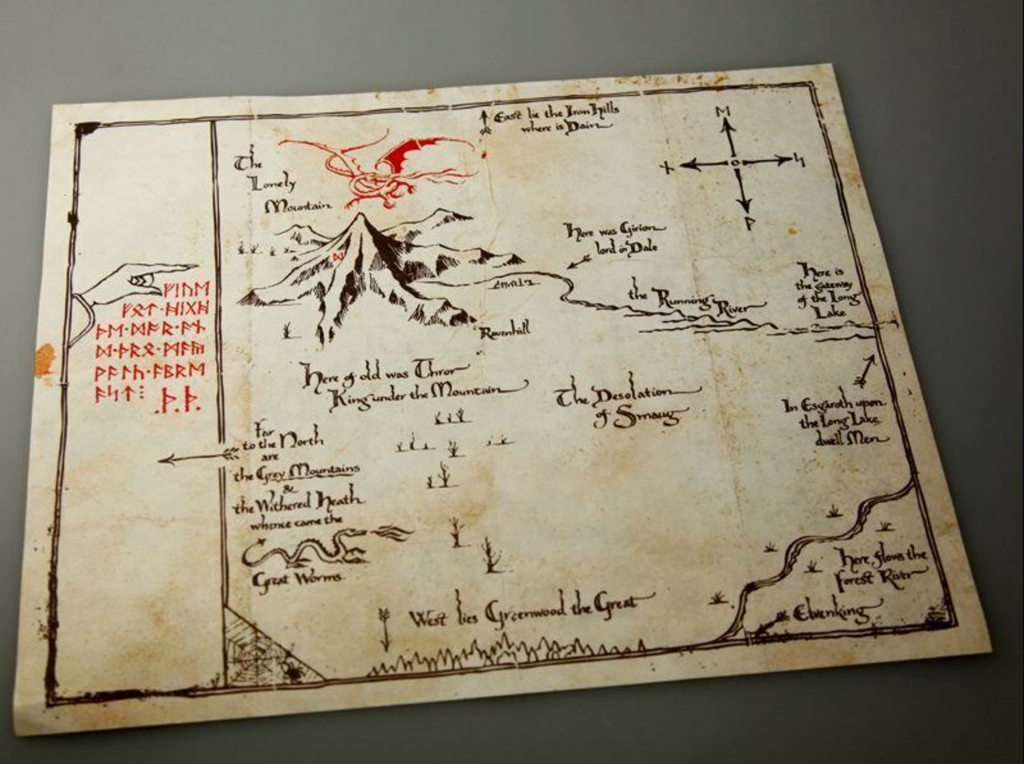 East lie the Iron Hills
where is Dain
ᛗ
ᚾ
ᛋ
ᚹ
The
Lonely
Mountain
ᛞ
Here was Girion
lord in Dale
Here is
the gateway
of the Long
Lake
the Running River
Ravenhill
ᚠᛁᚢᛖ
ᚠᛟᛏ᛫ᚻᛁᚷᚻ
ᚦᛖ᛫ᚪᚾ
ᛞ᛫ᚦᚱᛟ᛫ᛗᚫᚣ
ᚹᚪᛚᚳ᛫ᚪᛒᚱᛖ
ᚪᛋᛏ⁝
᛫ᚦ᛫ᚦ᛫
Here of old was Thror
King under the Mountain
The Desolation
of Smaug
In Esgaroth upon
the Long Lake
dwell Men
Far
to the North
are
the Grey Mountains
&
the Withered Heath
whence came the
Great Worms.
West lies Greenwood the Great
Here flows the
Forest River
Elvenking